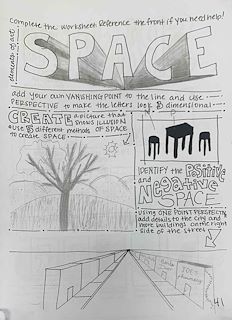 Complete the worksheet. Reference the front if you need help!
elements of art:
SPACE
add your own VANISHING POINT to the line and use
PERSPECTIVE to make the letters look 3 dimensional
CREATE a picture that
shows ILLUSION
use 3 different methods of SPACE
to create SPACE
IDENTIFY the Positive
and Negative
SPACE
Using ONE POINT PERSPECTIVE
add details to the city and
more buildings on the right
side of the street
JOE'S
41